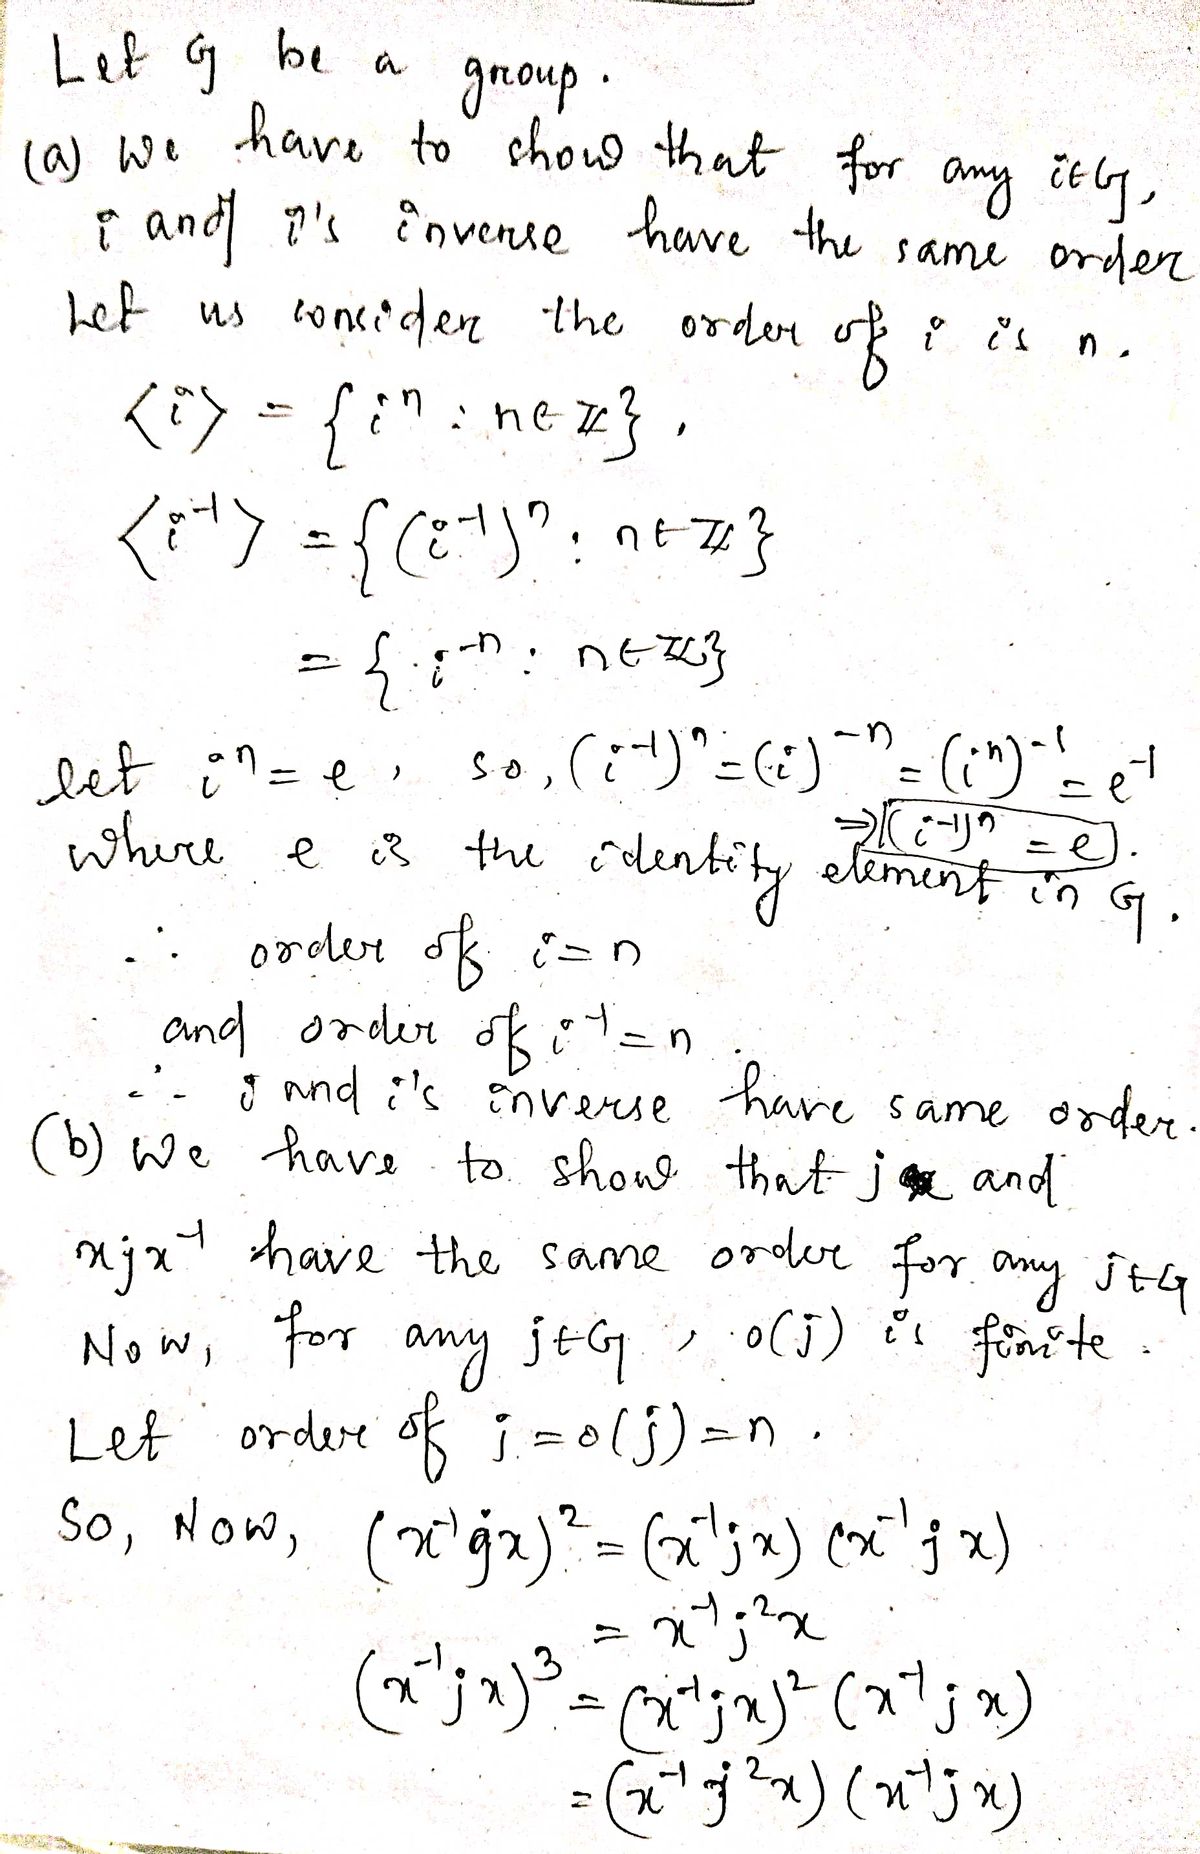 Let G be a group.
(a) We have to show that for any i∈G,
i and i's inverse have the same order
Let us consider the order of i is n.
⟨i⟩ = {iⁿ : n∈ℤ},
⟨i⁻¹⟩ = {(i⁻¹)ⁿ : n∈ℤ}
= {i⁻ⁿ : n∈ℤ}
let iⁿ = e, so, (i⁻¹)ⁿ = (i)⁻ⁿ = (iⁿ)⁻¹ = e⁻¹
⇒ (i⁻¹)ⁿ = e.
where e is the identity element in G.
∴ order of i = n
and order of i⁻¹ = n.
∴ i and i's inverse have same order.
(b) We have to show that j and
xjx⁻¹ have the same order for any j∈G
Now, for any j∈G, o(j) is finite.
Let order of j = o(j) = n.
So, Now, (x⁻¹jx)² = (x⁻¹jx) (x⁻¹jx)
= x⁻¹j²x
(x⁻¹jx)³ = (x⁻¹jx)² (x⁻¹jx)
= (x⁻¹j²x) (x⁻¹jx)